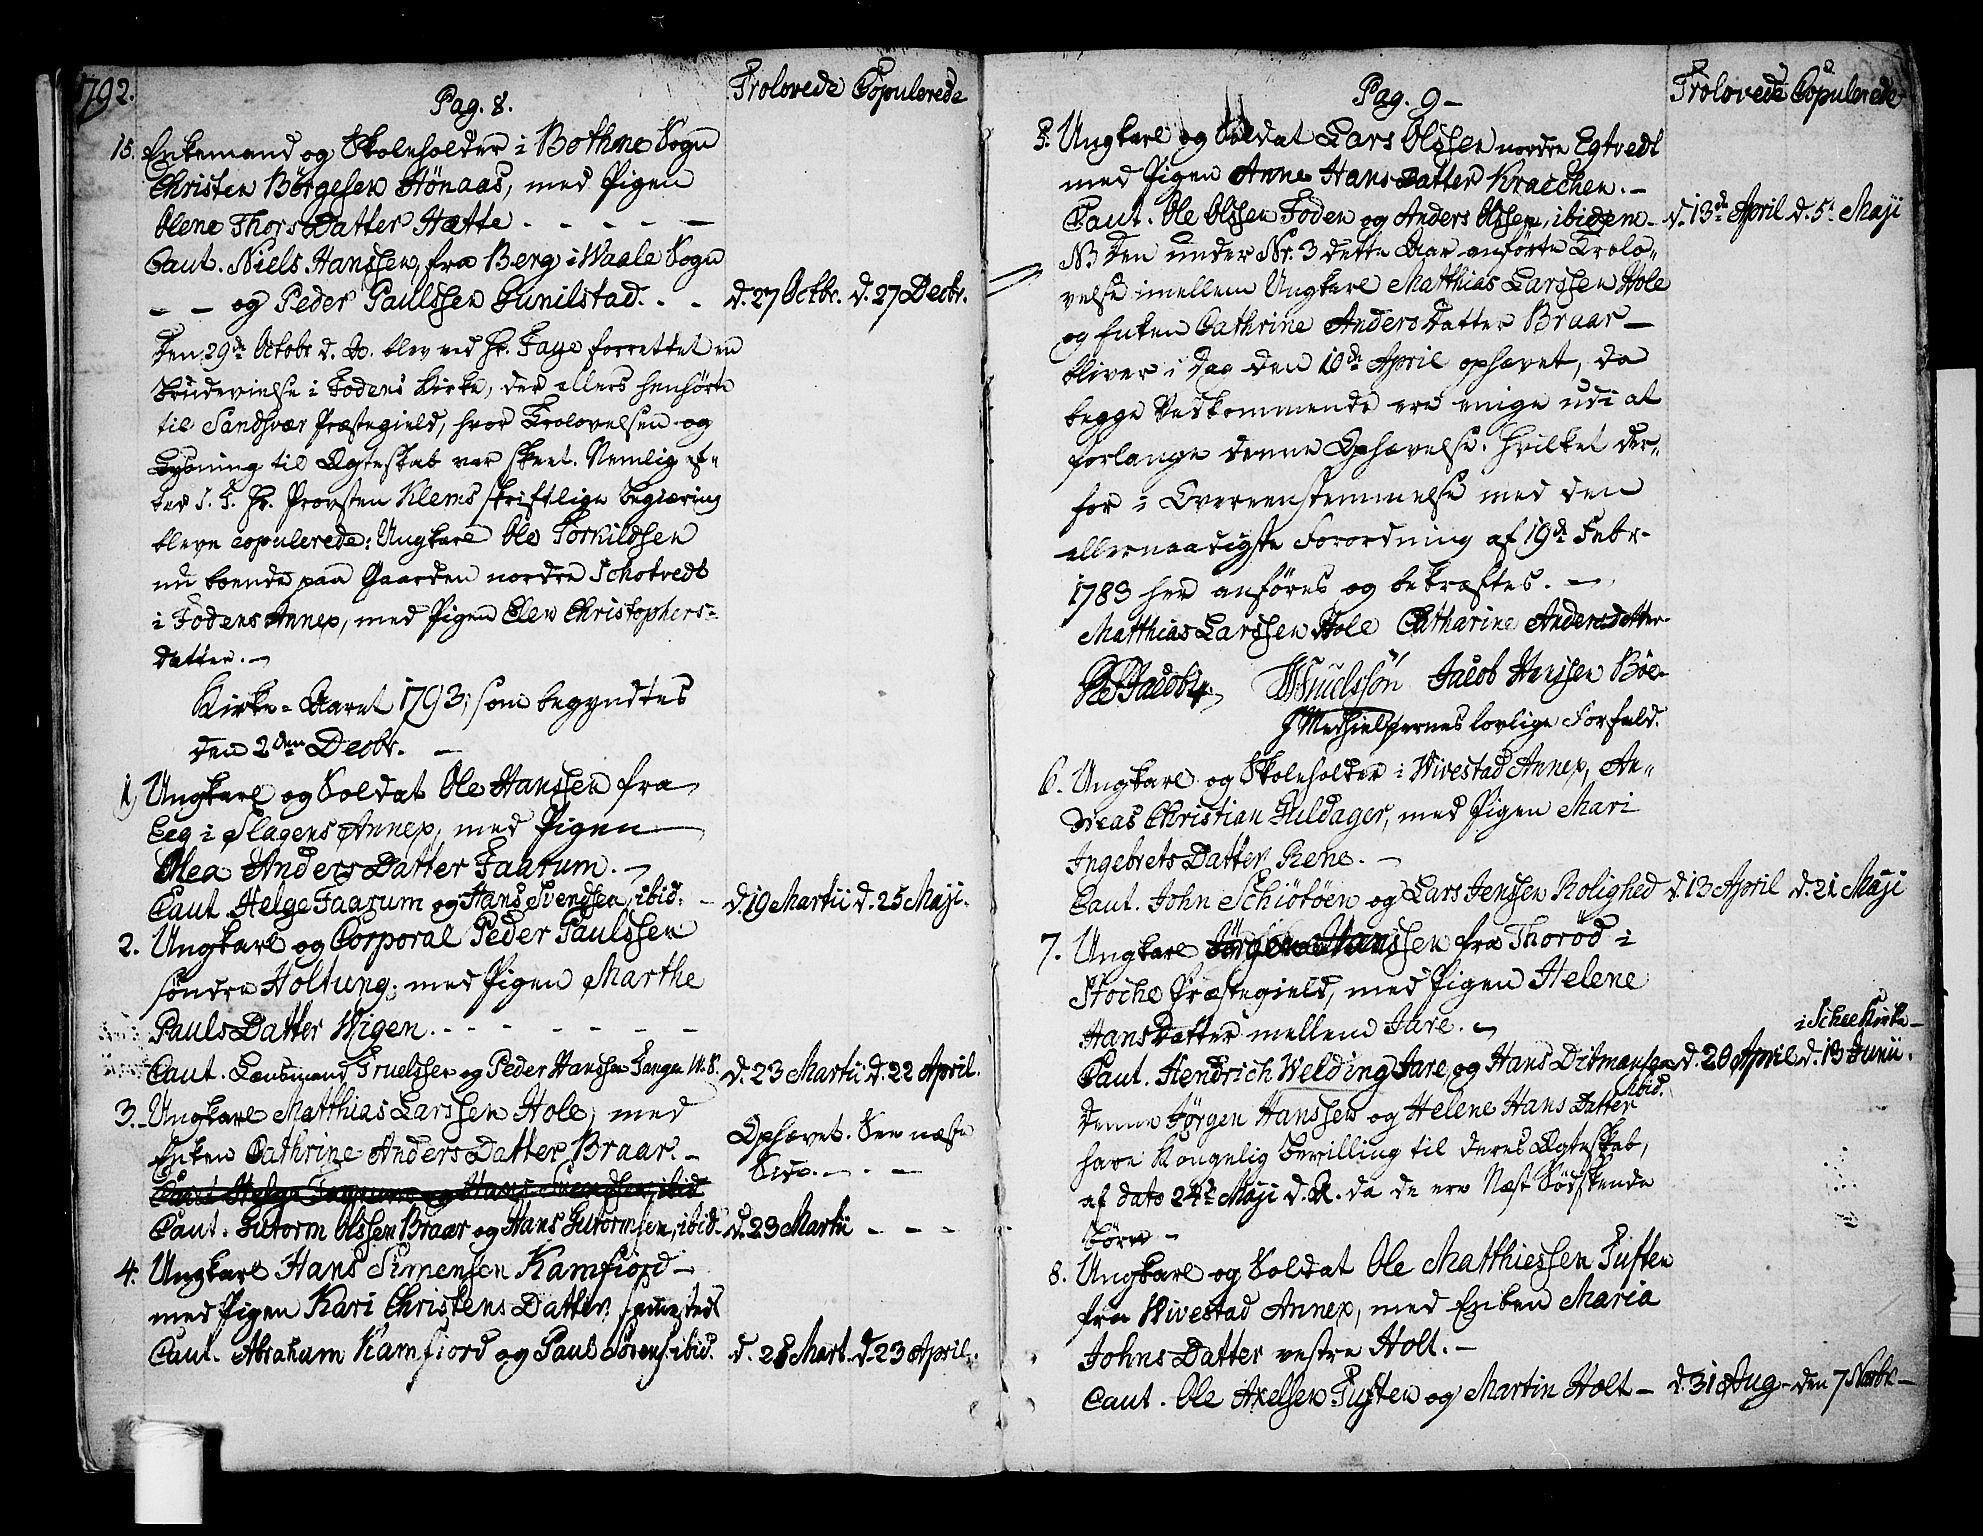 1792.
Pag. 8.
Trolovede Copulerede
15. Enkemand og Skoleholder i Bothne Sogn
Christen Börgesen Hönaas, med Pigen
Olene Thors Datter Hætte - - - - -
Caut. Niels Hanssen, fra Berg i Waale Sogn
— — og Peder Paulssen Gunilstad. - - d. 27 Octbr. d. 27 Decbr.
Den 29de Octobr d. A. blev ved Hr. Faye forrettet en
Brudevielse i Fodens Kirke, der ellers henhörte
til Sandsvær Præstegield, hvor Trolovelsen og
Lysning til Ægteskab var skeet. Nemlig ef-
ter S. T. Hr. Provsten Klems skriftlige Begiæring
bleve copulerede: Ungkarl Ole Torkildsen
nu boende paa Gaarden nordre Schotvedt
i Fodens Annex, med Pigen Elen Christophers-
datter. —
Kirke-Aaret 1793, som begyndtes
den 2den Decbr. —
1, Ungkarl og Soldat Ole Hanssen fra
Eeg i Slagens Annex, med Pigen
Olea Anders Datter Faarum. —
Caut. Helge Faarum og Hans Svendsen, ibid. - d. 19 Martii d. 25 Maji.
2. Ungkarl og Corporal Peder Paulssen
söndre Holtung, med Pigen Marthe
Pauls Datter Wigen. - - - - - - -
Caut. Lensmand Truelssen og Peder Hanssen Tange N. 8. d. 23 Martii d. 22 April.
3. Ungkarl Matthias Larssen Hole, med
Enken Cathrine Anders Datter Braar. —
Ophævet. See næste
Side. — . —
Caut. Helge Faarum og Hans Svendsen, ibid
Caut. Gutorm Olssen Braar og Hans Gutormsen, ibid. d. 23 Martii - - -
4. Ungkarl Hans Simensen Kamfiord —
med Pigen Kari Christens Datter, sammested
Caut. Abraham Kamfiord og Paul Sörens. ibid. d. 28 Mart. d. 23 April.
Pag. 9 —
Trolovede Copulerede
5. Ungkarl og Soldat Lars Olssen nordre Egtvedt
med Pigen Anne Hans Datter Kraechen. —
Caut. Ole Olssen Foden og Anders Olssen, ibidem — d. 13de April d. 5te Maji
NB Den under Nr. 3 dette Aar anförte Trolo-
velse imellem Ungkarl Matthias Larssen Hole
og Enken Cathrine Anders Datter Braar —
bliver i Dag den 10de April ophævet, da
begge Vedkommende ere enige udi at
forlange denne Ophævelse. Hvilket der-
for i Overeenstemmelse med den
allernaadigste Forordning af 19de Febr.
1783 her anföres og bekræftes. —
Matthias Larssen Hole Catharine Andersdatter
Jacob Hanssen Böe
Medhielpernes lovlige Forfald.
6. Ungkarl og Skoleholder i Wivestad Annex, An-
dreas Christian Hildager, med Pigen Mari
Ingebrets Datter Rene. —
Caut. John Schiötöen og Lars Jenssen Rolighed d. 13 April d. 21 Maji
7. Ungkarl Jörgen Hanssen fra Thoröd i
Stoche Præstegield, med Pigen Helene
Hans Datter mellem Jare. —
i Schee Kirke —
Caut. Hendrich Welding Jare og Hans Ditmansen d. 20 April d. 13 Junii.
ibid.
denne Jörgen Hanssen og Helene Hans Datter
have Kongelig Bevilling til deres Ægteskab,
af dato 24de Maji d. A. da de ere Næst Södskende
Börn —
8. Ungkarl og Soldat Ole Matthiessen Tuften
fra Wivestad Annex, med Enken Maria
Johns Datter vestre Holt. —
Caut. Ole Axelsen Tuften og Martin Holt — d. 31 Aug — den 7 Novbr —